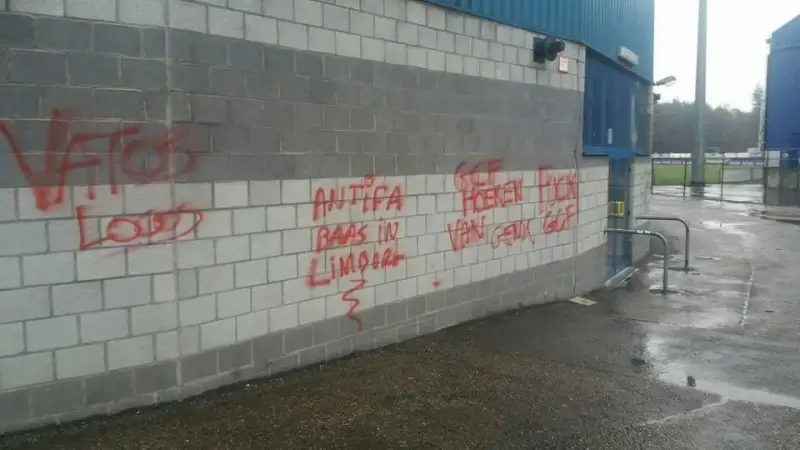 VATOS
LOCOS
ANTIFA
BAAS IN
LIMBURG
GCF
HOEREN
VAN GENK
FUCK
GCF